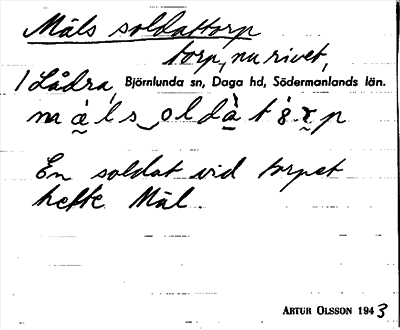 Mäls soldattorp
torp, nu rivet,
/ Lådra, Björnlunda sn, Daga hd, Södermanlands län.
En soldat vid torpet
hette Mäl.
ARTUR OLSSON 1943